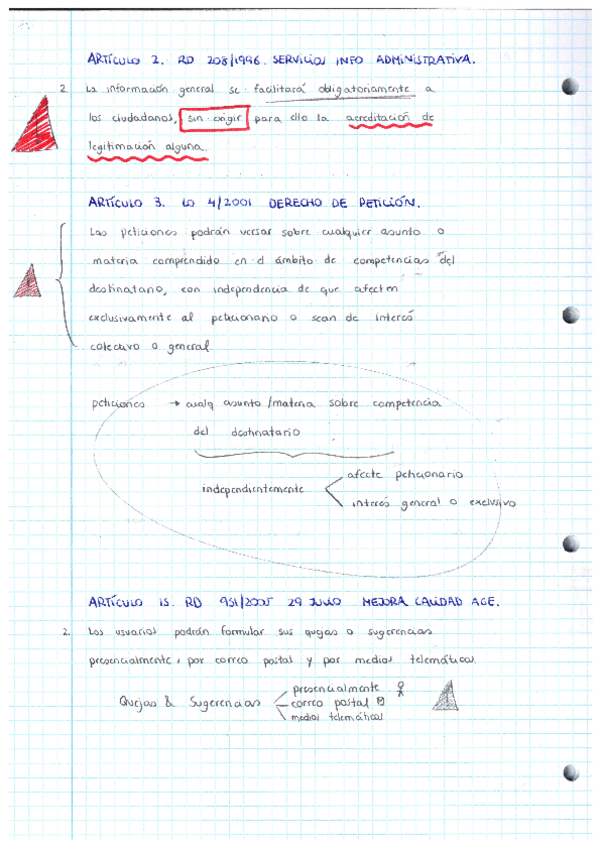 ARTÍCULO 2. RD 208/1996. SERVICIOS INFO ADMINISTRATIVA.
2. La información general se facilitará obligatoriamente a
los ciudadanos, sin exigir para ello la acreditación de
legitimación alguna.
ARTÍCULO 3. LO 4/2001 DERECHO DE PETICIÓN.
Las peticiones podrán versar sobre cualquier asunto o
materia comprendido en el ámbito de competencias del
destinatario, con independencia de que afecten
exclusivamente al peticionario o sean de interés
colectivo o general
peticiones → cualq asunto/materia sobre competencia
del destinatario
independientemente
afecte peticionario
interés general o exclusivo
ARTÍCULO 15. RD 951/2005 29 JULIO MEJORA CALIDAD AGE.
2. Los usuarios podrán formular sus quejas o sugerencias
presencialmente, por correo postal y por medios telemáticos.
Quejas & Sugerencias
presencialmente
correo postal
medios telemáticos